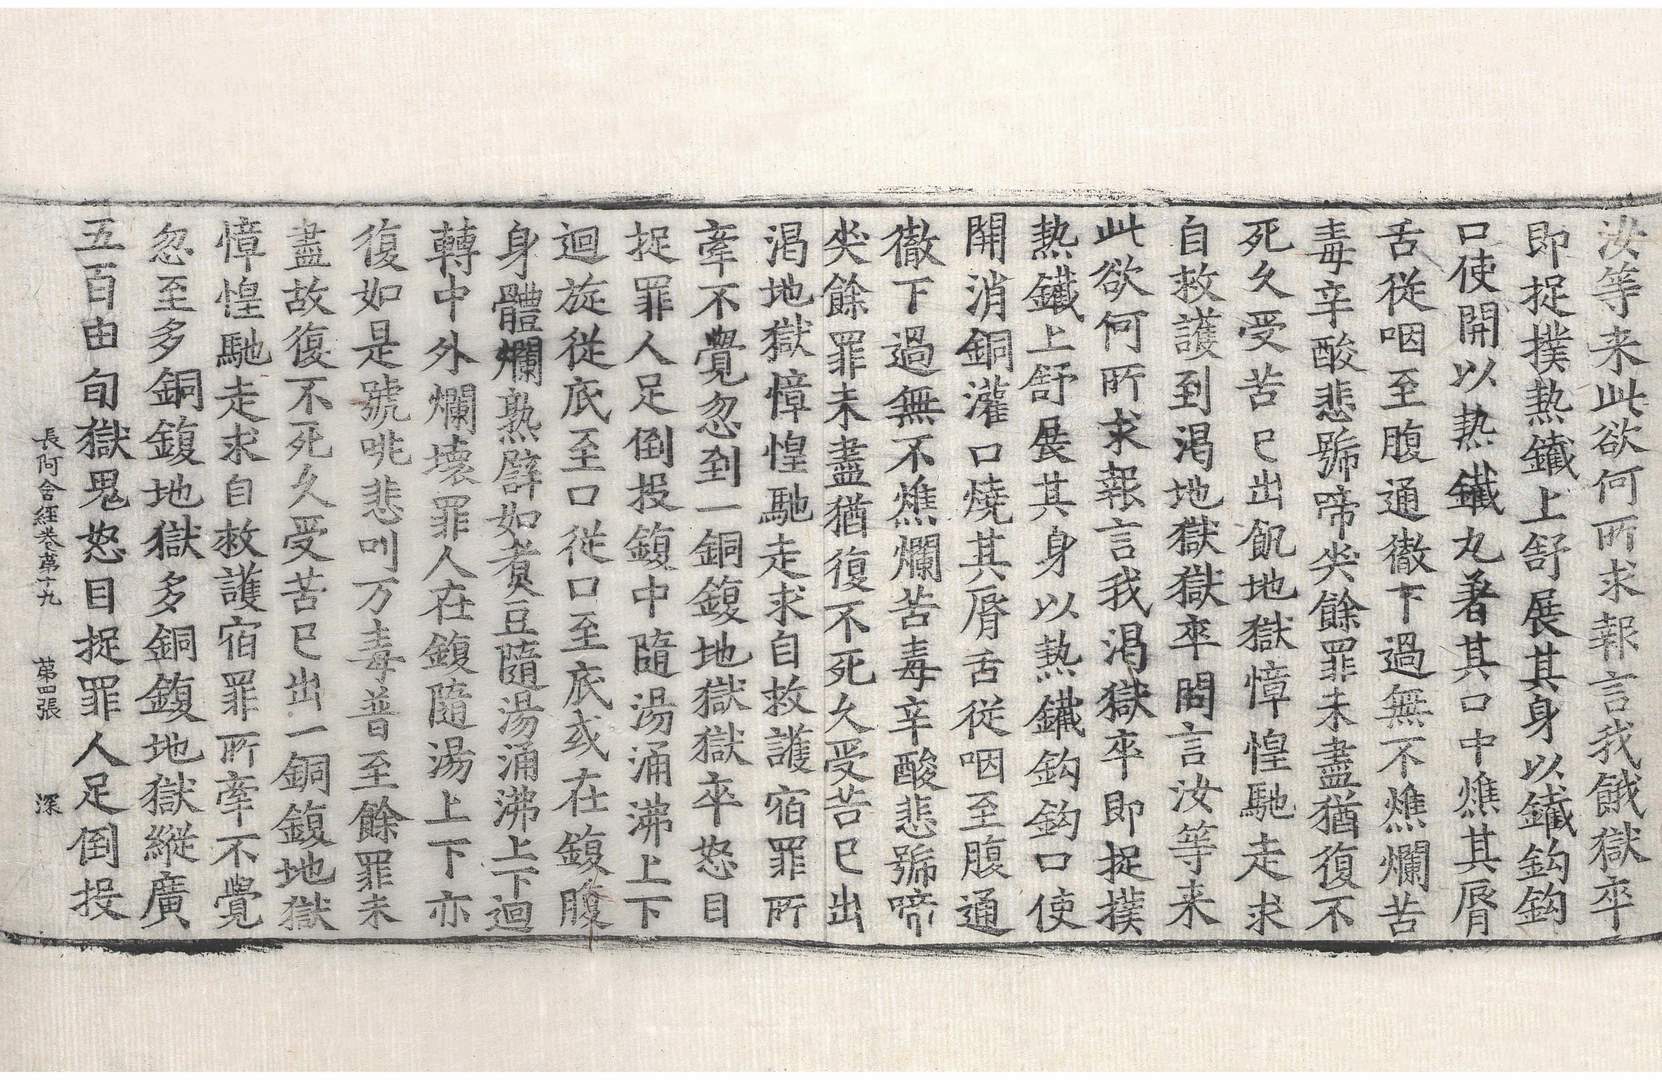 汝等来此欲何所求報言我餓獄卒
即捉撲熱鐵上舒展其身以鐵鈎鈎
口使開以熱鐵丸著其口中燋其脣
舌從咽至腹通徹下過無不燋爛苦
毒辛酸悲號啼哭餘罪未盡猶復不
死久受苦已出飢地獄慞惶馳走求
自救護到渴地獄獄卒問言汝等来
此欲何所求報言我渴獄卒即捉撲
熱鐵上舒展其身以熱鐵鈎鈎口使
開消銅灌口燒其脣舌從咽至腹通
徹下過無不燋爛苦毒辛酸悲號啼
哭餘罪未盡猶復不死久受苦已出
渴地獄慞惶馳走求自救護宿罪所
牽不覺忽到一銅鍑地獄獄卒怒目
捉罪人足倒投鍑中隨湯涌沸上下
迴旋從底至口從口至底或在鍑腹
身體爛熟辟如煑豆隨湯涌沸上下迴
轉中外爛壞罪人在鍑隨湯上下亦
復如是號咷悲叫万毒普至餘罪未
盡故復不死久受苦已出一銅鍑地獄
慞惶馳走求自救護宿罪所牽不覺
忽至多銅鍑地獄多銅鍑地獄縱廣
五百由旬獄鬼怒目捉罪人足倒投
長阿含經卷第十九　第四張　深